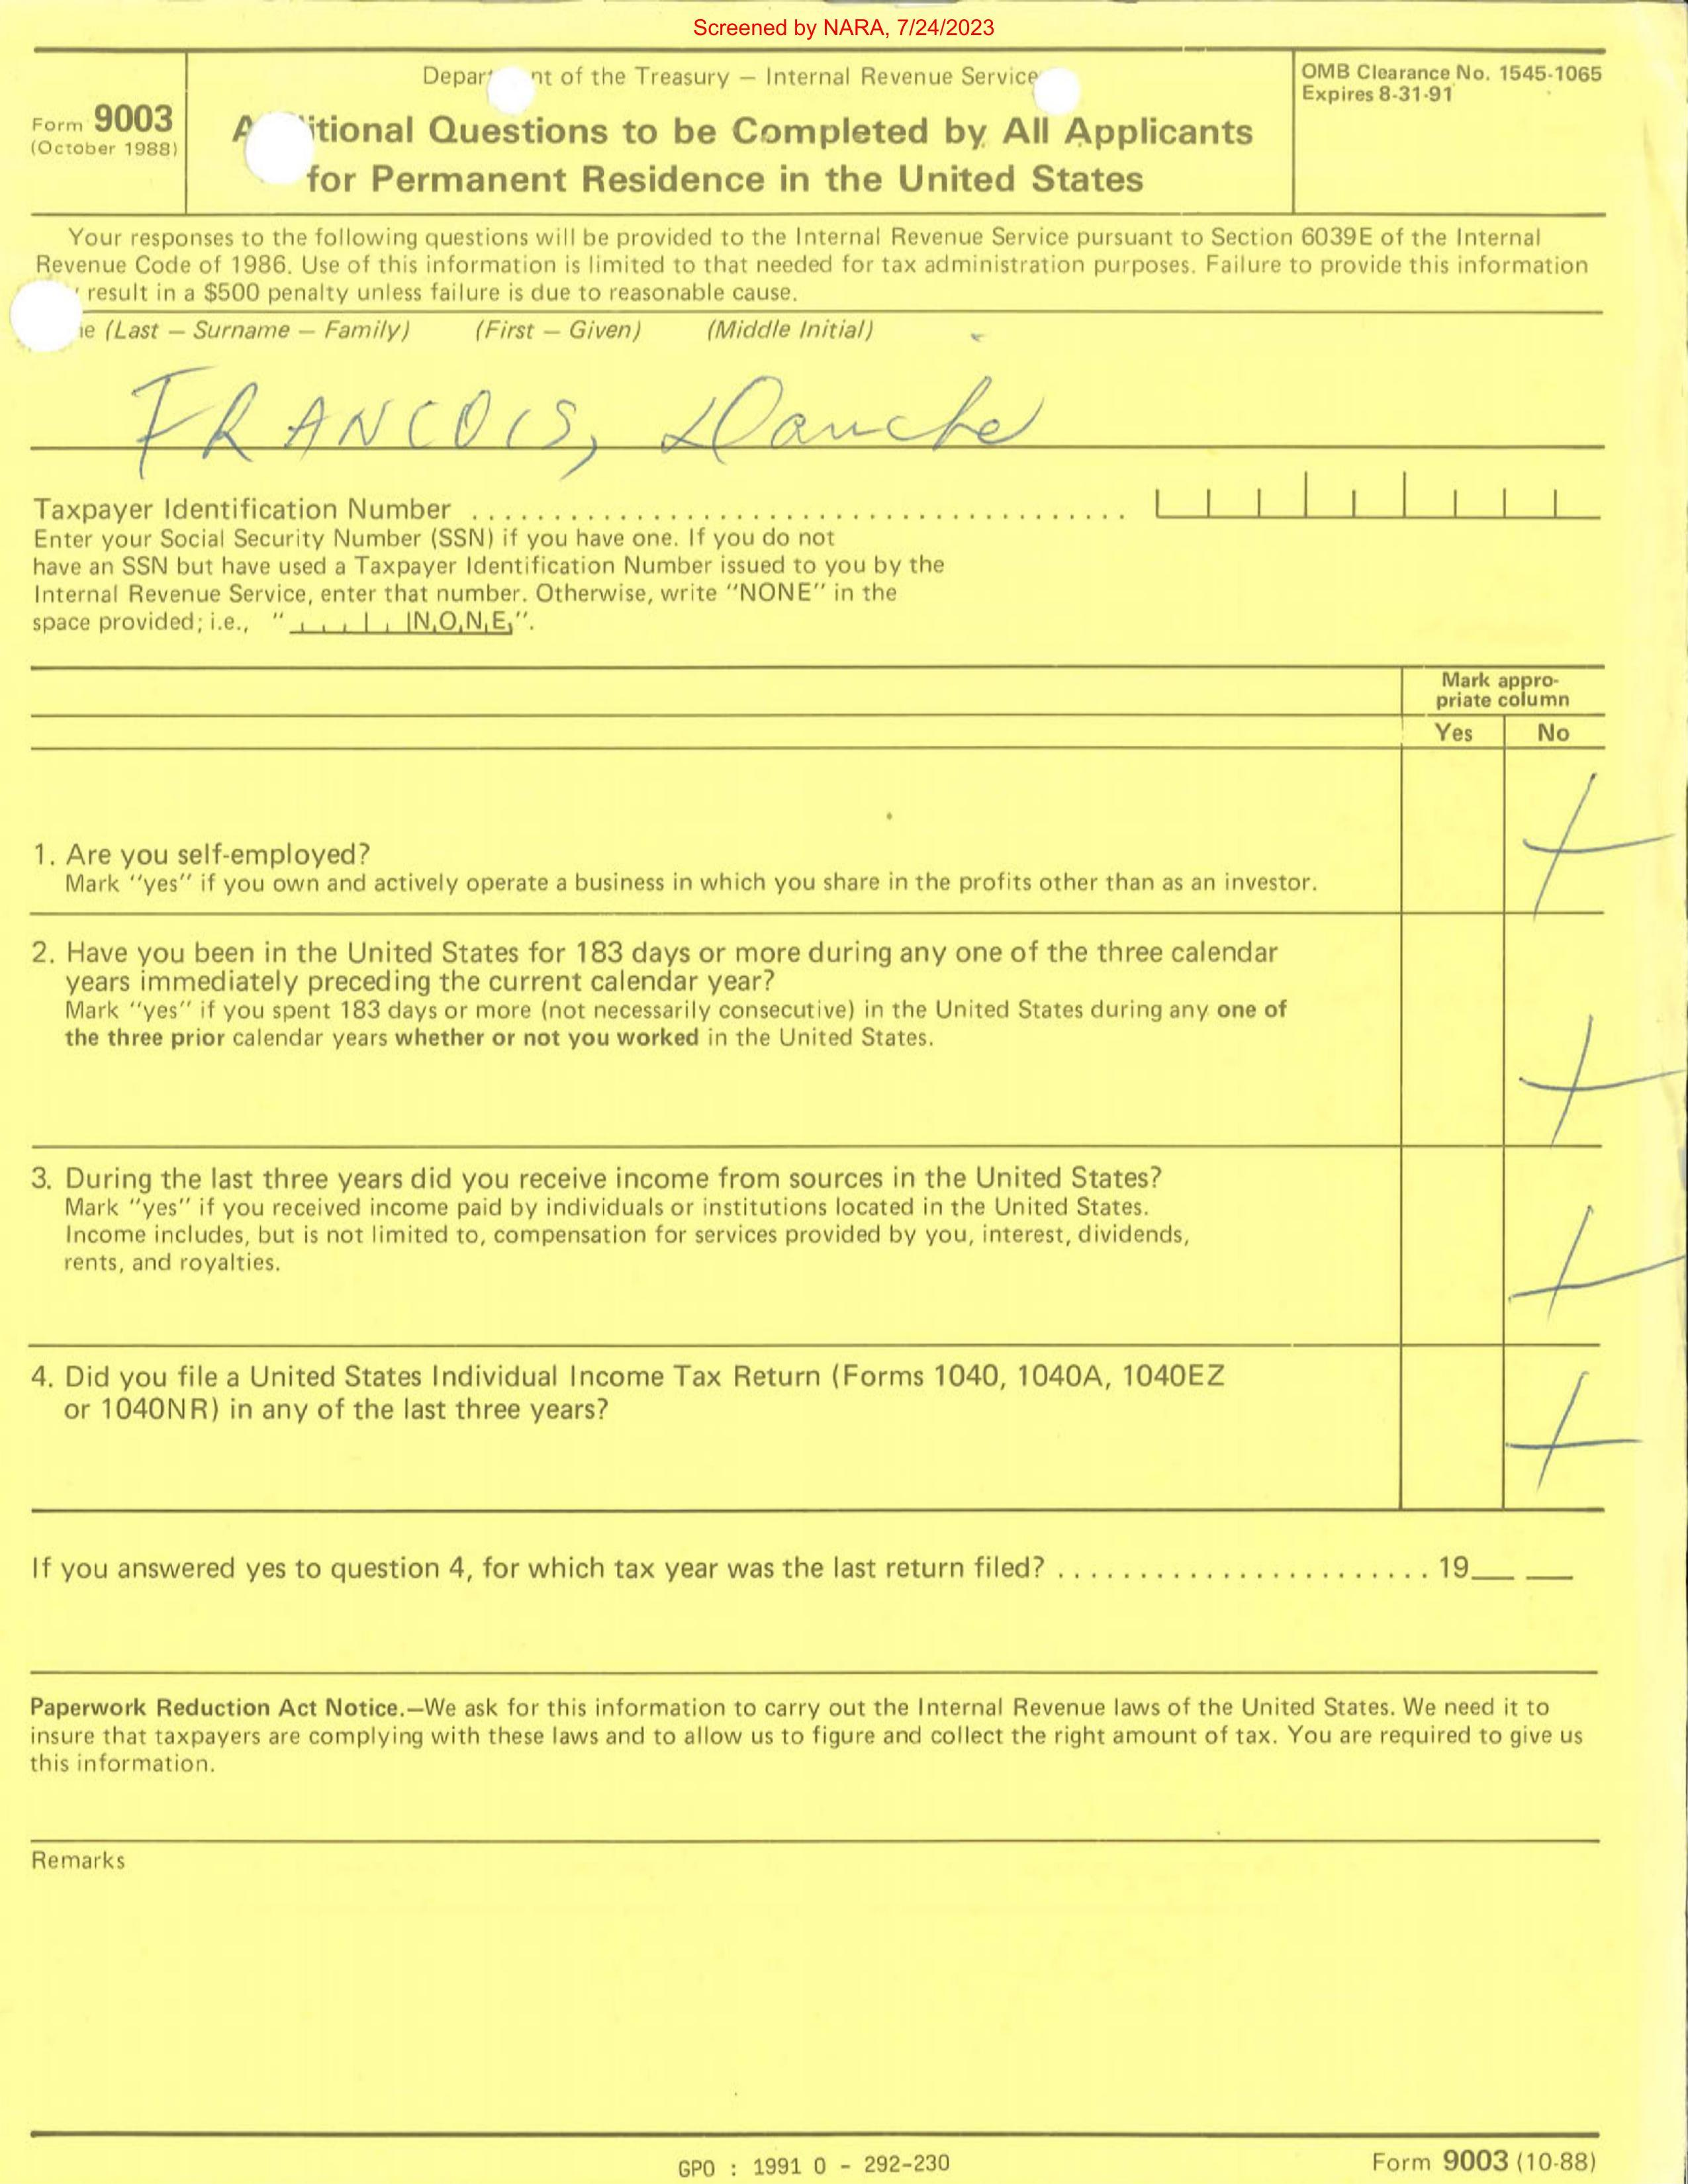 Screened by NARA, 7/24/2023
Form 9003
(October 1988)
Depar nt of the Treasury — Internal Revenue Service
A itional Questions to be Completed by All Applicants
for Permanent Residence in the United States
OMB Clearance No. 1545-1065
Expires 8-31-91
Your responses to the following questions will be provided to the Internal Revenue Service pursuant to Section 6039E of the Internal
Revenue Code of 1986. Use of this information is limited to that needed for tax administration purposes. Failure to provide this information
result in a $500 penalty unless failure is due to reasonable cause.
e (Last — Surname — Family) (First — Given) (Middle Initial)
FRANCOIS,
Taxpayer Identification Number
Enter your Social Security Number (SSN) if you have one. If you do not
have an SSN but have used a Taxpayer Identification Number issued to you by the
Internal Revenue Service, enter that number. Otherwise, write "NONE" in the
space provided; i.e., " NONE".
Mark appro-
priate column
Yes No
1. Are you self-employed?
Mark "yes" if you own and actively operate a business in which you share in the profits other than as an investor.
2. Have you been in the United States for 183 days or more during any one of the three calendar
years immediately preceding the current calendar year?
Mark "yes" if you spent 183 days or more (not necessarily consecutive) in the United States during any one of
the three prior calendar years whether or not you worked in the United States.
3. During the last three years did you receive income from sources in the United States?
Mark "yes" if you received income paid by individuals or institutions located in the United States.
Income includes, but is not limited to, compensation for services provided by you, interest, dividends,
rents, and royalties.
4. Did you file a United States Individual Income Tax Return (Forms 1040, 1040A, 1040EZ
or 1040NR) in any of the last three years?
If you answered yes to question 4, for which tax year was the last return filed? 19__ __
Paperwork Reduction Act Notice.—We ask for this information to carry out the Internal Revenue laws of the United States. We need it to
insure that taxpayers are complying with these laws and to allow us to figure and collect the right amount of tax. You are required to give us
this information.
Remarks
GPO : 1991 0 - 292-230
Form 9003 (10-88)